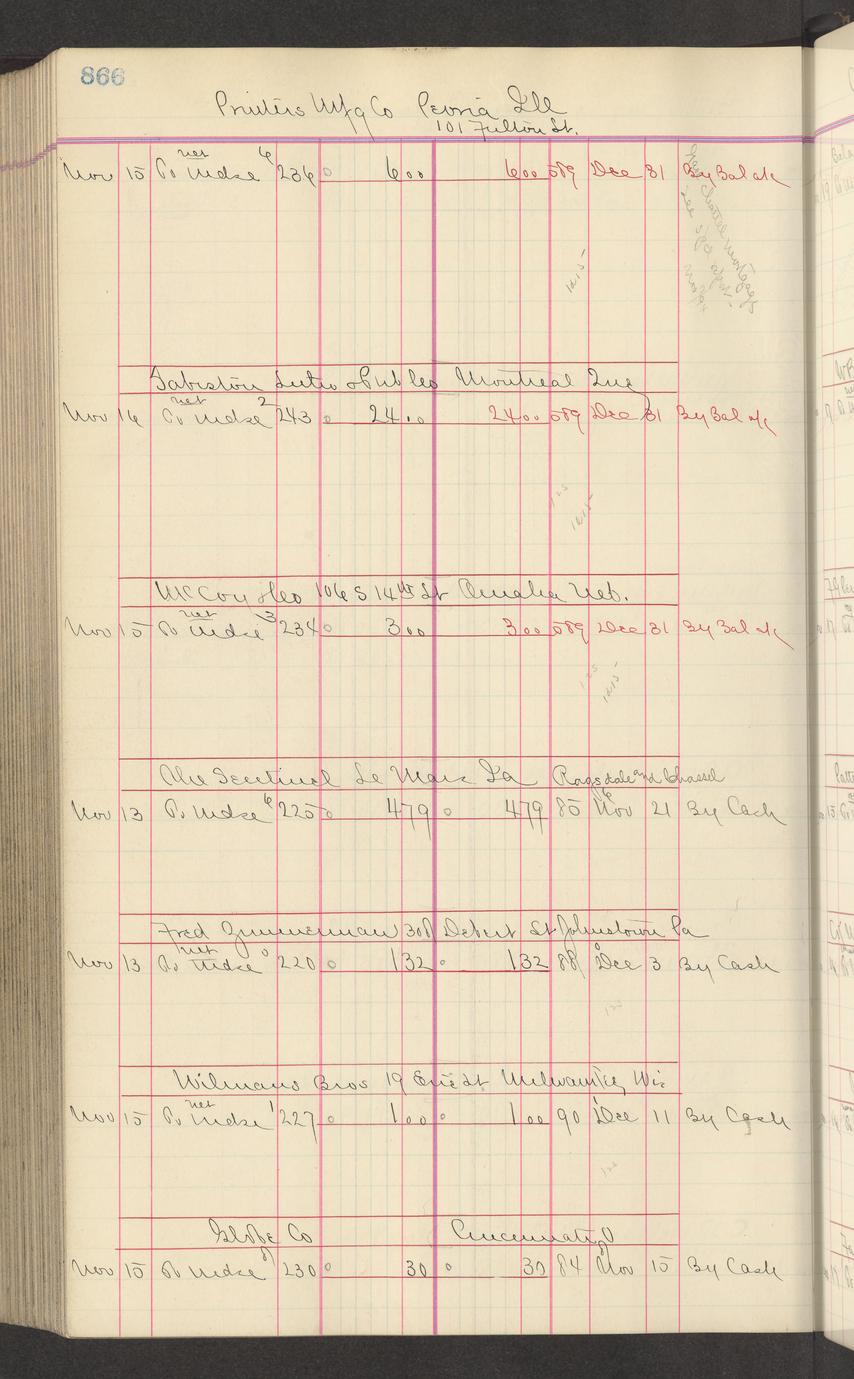 866
Printers Mfg Co Peoria Ill
101 Fulton St.
Nov 15 To Mdse net 6 236 6 00 6 00 589 Dec 31 By Bal a/c
Chattel Mortgage
1215
Sabiston Litho & Pub Co Montreal Que
Nov 16 To Mdse net 2 243 24 00 24 00 589 Dec 31 By Bal a/c
125
1215
McCoy & Co 106 S 14th St Omaha Neb.
Nov 15 To Mdse net 3 234 3 00 3 00 589 Dec 31 By Bal a/c
125
1215
The Sentinel Le Mars Ia Ragsdale and Chassel
Nov 13 To Mdse 6 225 4 79 4 79 85 Nov 21 By Cash
Fred Zimmerman 308 Debert St Johnstown Pa
Nov 13 To Mdse net 0 220 1 32 1 32 88 Dec 3 By Cash
Wilmans Bros 19 Erie St Milwaukee, Wis
Nov 15 To Mdse net 1 227 1 00 1 00 90 Dec 11 By Cash
Globe Co Cincinnati O
Nov 15 To Mdse 230 30 30 84 Nov 15 By Cash